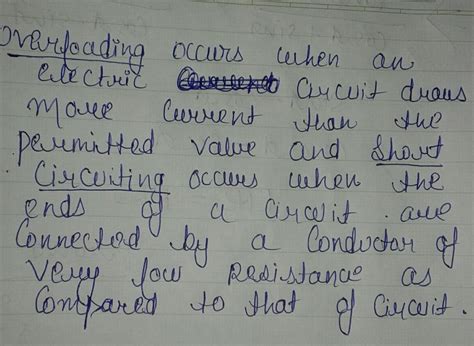 Overloading occurs when an
electric circuit draws
more current than the
permitted value and short
circuiting occurs when the
ends of a circuit are
connected by a conductor of
very low resistance as
compared to that of circuit.